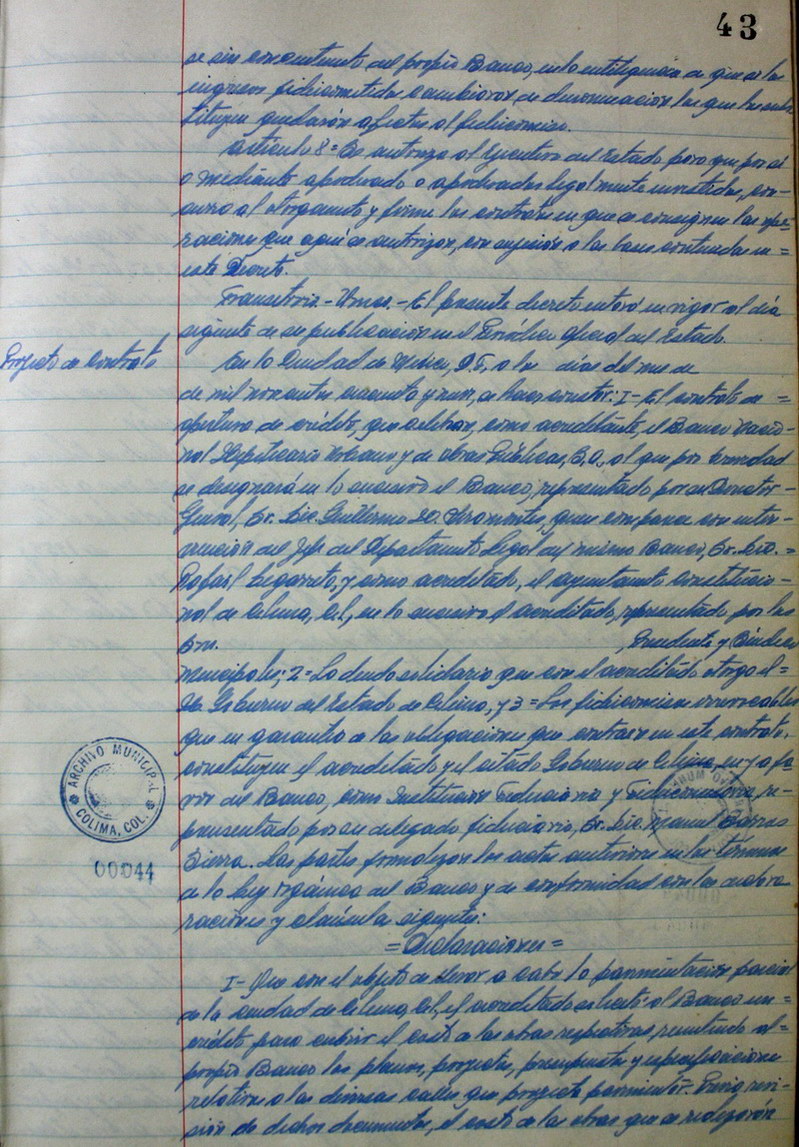 43
se sin consentimiento del propio Banco, en la inteligencia de que si los
ingresos fideicometidos cambiaran de denominación los que los subs
tituyan quedarán afectos al fideicomiso.
Artículo 8= Se autoriza al Ejecutivo del Estado para que por sí
o mediante apoderado o apoderados legalmente investidos, con-
curra al otorgamiento y firme los contratos en que se consignen las ope-
raciones que aquí se autorizan, con sujeción a las bases contenidas en =
este Decreto.
Transitorio.- Unico.- El presente decreto entrará en vigor al día
siguiente de su publicación en el Periódico Oficial del Estado.
Proyecto de Contrato
En la Ciudad de México, D.F., a los días del mes de
de mil novecientos cincuenta y nueve, se hace constar: I- El contrato de =
apertura de crédito, que celebran, como acreditante, el Banco Nacio-
nal Hipotecario Urbano y de Obras Públicas, S.A., al que por brevedad
se designará en lo sucesivo el Banco, representado por su Director-
General, Sr. Lic. Guillermo H. Viramontes, quien comparece con inter-
vención del Jefe del Departamento Legal del mismo Banco, Sr. Lic. =
Rafael Legarreta, y como acreditado, el ayuntamiento Constitucio-
nal de Colima, Col., en lo sucesivo el acreditado, representado por los
Sres. , Presidente y Síndico
Municipales; 2= La deuda solidaria que con el acreditado otorga el =
Gobierno del Estado de Colima, y 3= Los fideicomisos irrevocables
que en garantía de las obligaciones que contraen en este contrato,
constituyen el acreditado y el citado Gobierno de Colima, en y a fa-
vor del Banco, como Institución Fiduciaria y Fideicomisaria, re-
presentado por su delegado fiduciario, Sr. Lic. Manuel
Sierra. Las partes formalizan los actos anteriores en los términos
de la ley orgánica del Banco y de conformidad con las declara
raciones y cláusulas siguientes:
=Declaraciones=
I- Que con el objeto de llevar a cabo la pavimentación parcial
de la ciudad de Colima, Col., el acreditado solicitó al Banco un =
crédito para cubrir el costo de las obras respectivas, remitiendo al =
propio Banco los planos, proyectos, presupuestos y especificaciones
relativos a las diversas calles que proyecta pavimentar. Previa revi-
sión de dichos documentos, el costo de las obras que se realizarán
ARCHIVO MUNICIPAL
COLIMA, COL.
00044